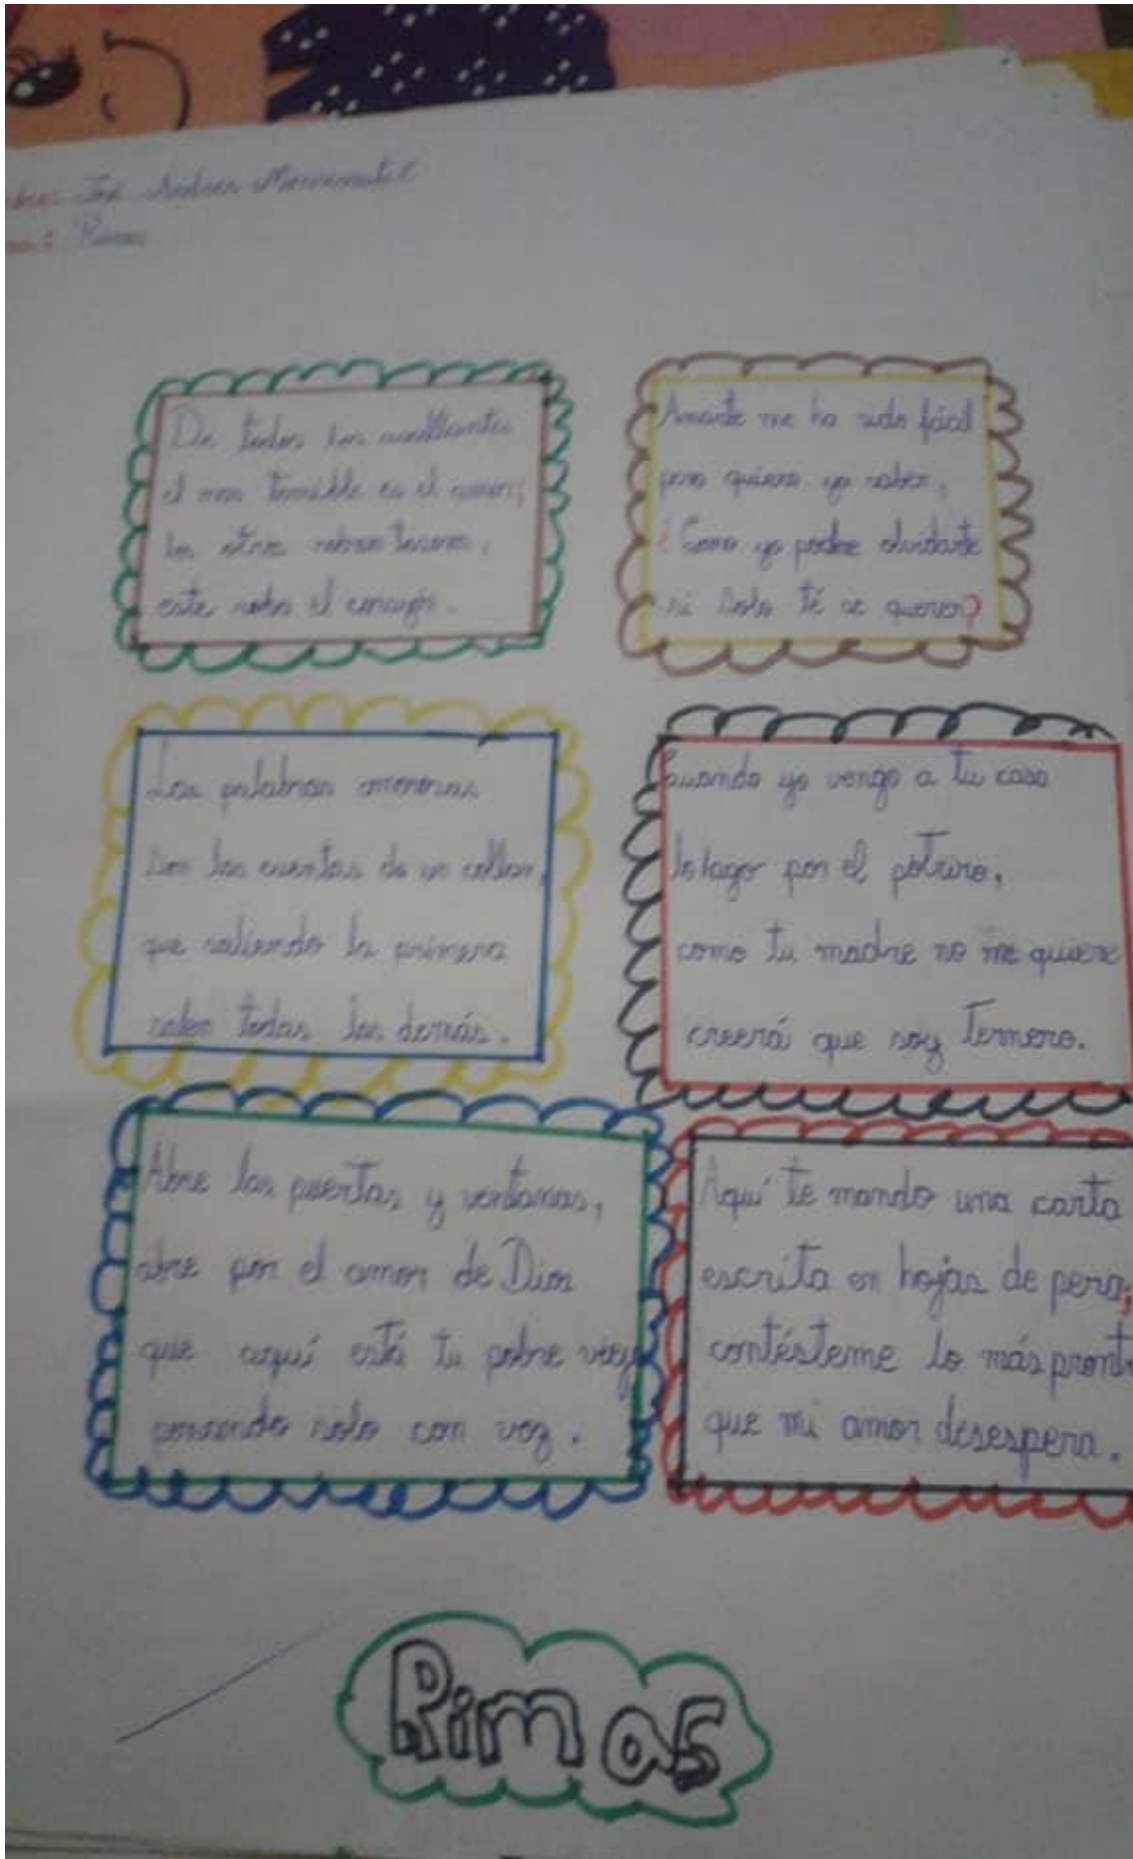 Andrea
Rimas
De todos los asaltantes
el mas temible es el amor;
los otros roban tesoros,
este roba el corazón.
Amarte me ha sido fácil
pero quiero yo saber,
¿Como yo podre olvidarte
si solo té se querer?
Las palabras amorosas
son las cuentas de un collar,
que saliendo la primera
salen todas las demás.
Cuando yo vengo a tu casa
lo hago por el potrero,
como tu madre no me quiere
creerá que soy Ternero.
Abre las puertas y ventanas,
abre por el amor de Dios
que aquí está tu pobre
penando solo con voz.
Aquí te mando una carta
escrita en hojas de pera;
contésteme lo más pront
que mi amor desespera.
Rimas